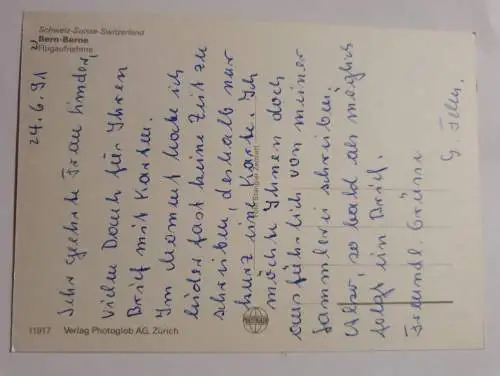 Schweiz-Suisse-Switzerland
Bern-Berne
Flugaufnahme
24.6.91
Sehr geehrte Frau
Vielen Dank für Ihren
Brief mit Karten.
Im Moment habe ich
leider fast keine Zeit zu
schreiben, deshalb nur
kurz eine Karte. Ich
möchte Ihnen doch
ausführlich von meiner
Sammlerei schreiben.
Also, so bald als möglich
folgt ein Brief.
Freundl. Grüsse
G.
11917 Verlag Photoglob AG, Zürich